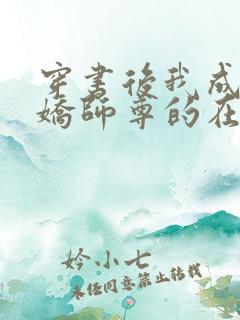 穿書後我成
嬌師尊的在
妗小七
未经同意禁止转载